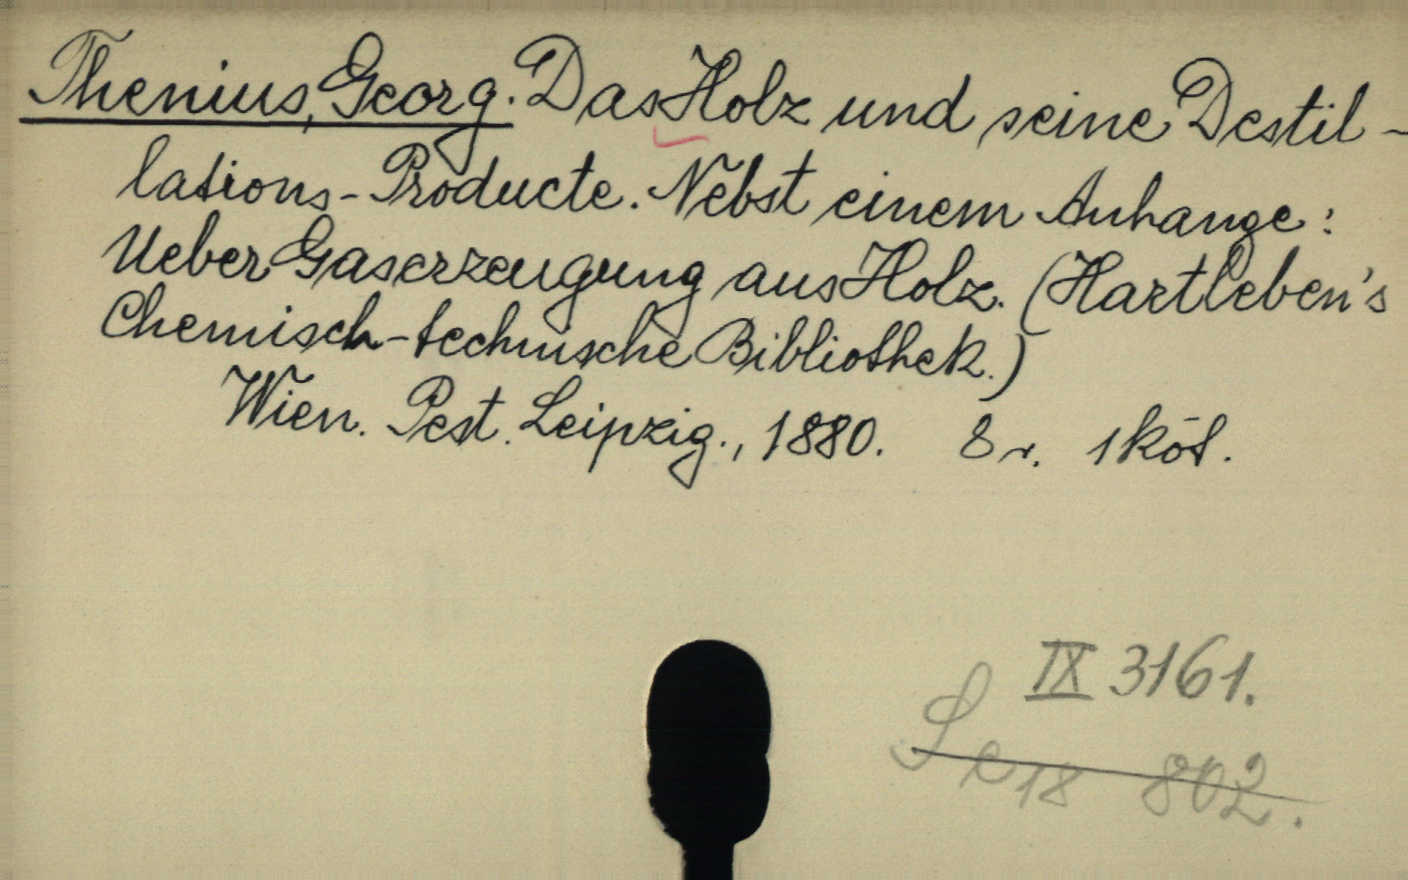 Thenius, Georg. Das Holz und seine Destil-
lations-Producte. Nebst einem Anhange:
Ueber Gaserzeugung aus Holz. (Hartleben's
Chemisch-technische Bibliothek.)
Wien. Pest. Leipzig., 1880. 8 r. 1 köt.
IX 3161.
L e 18 802.